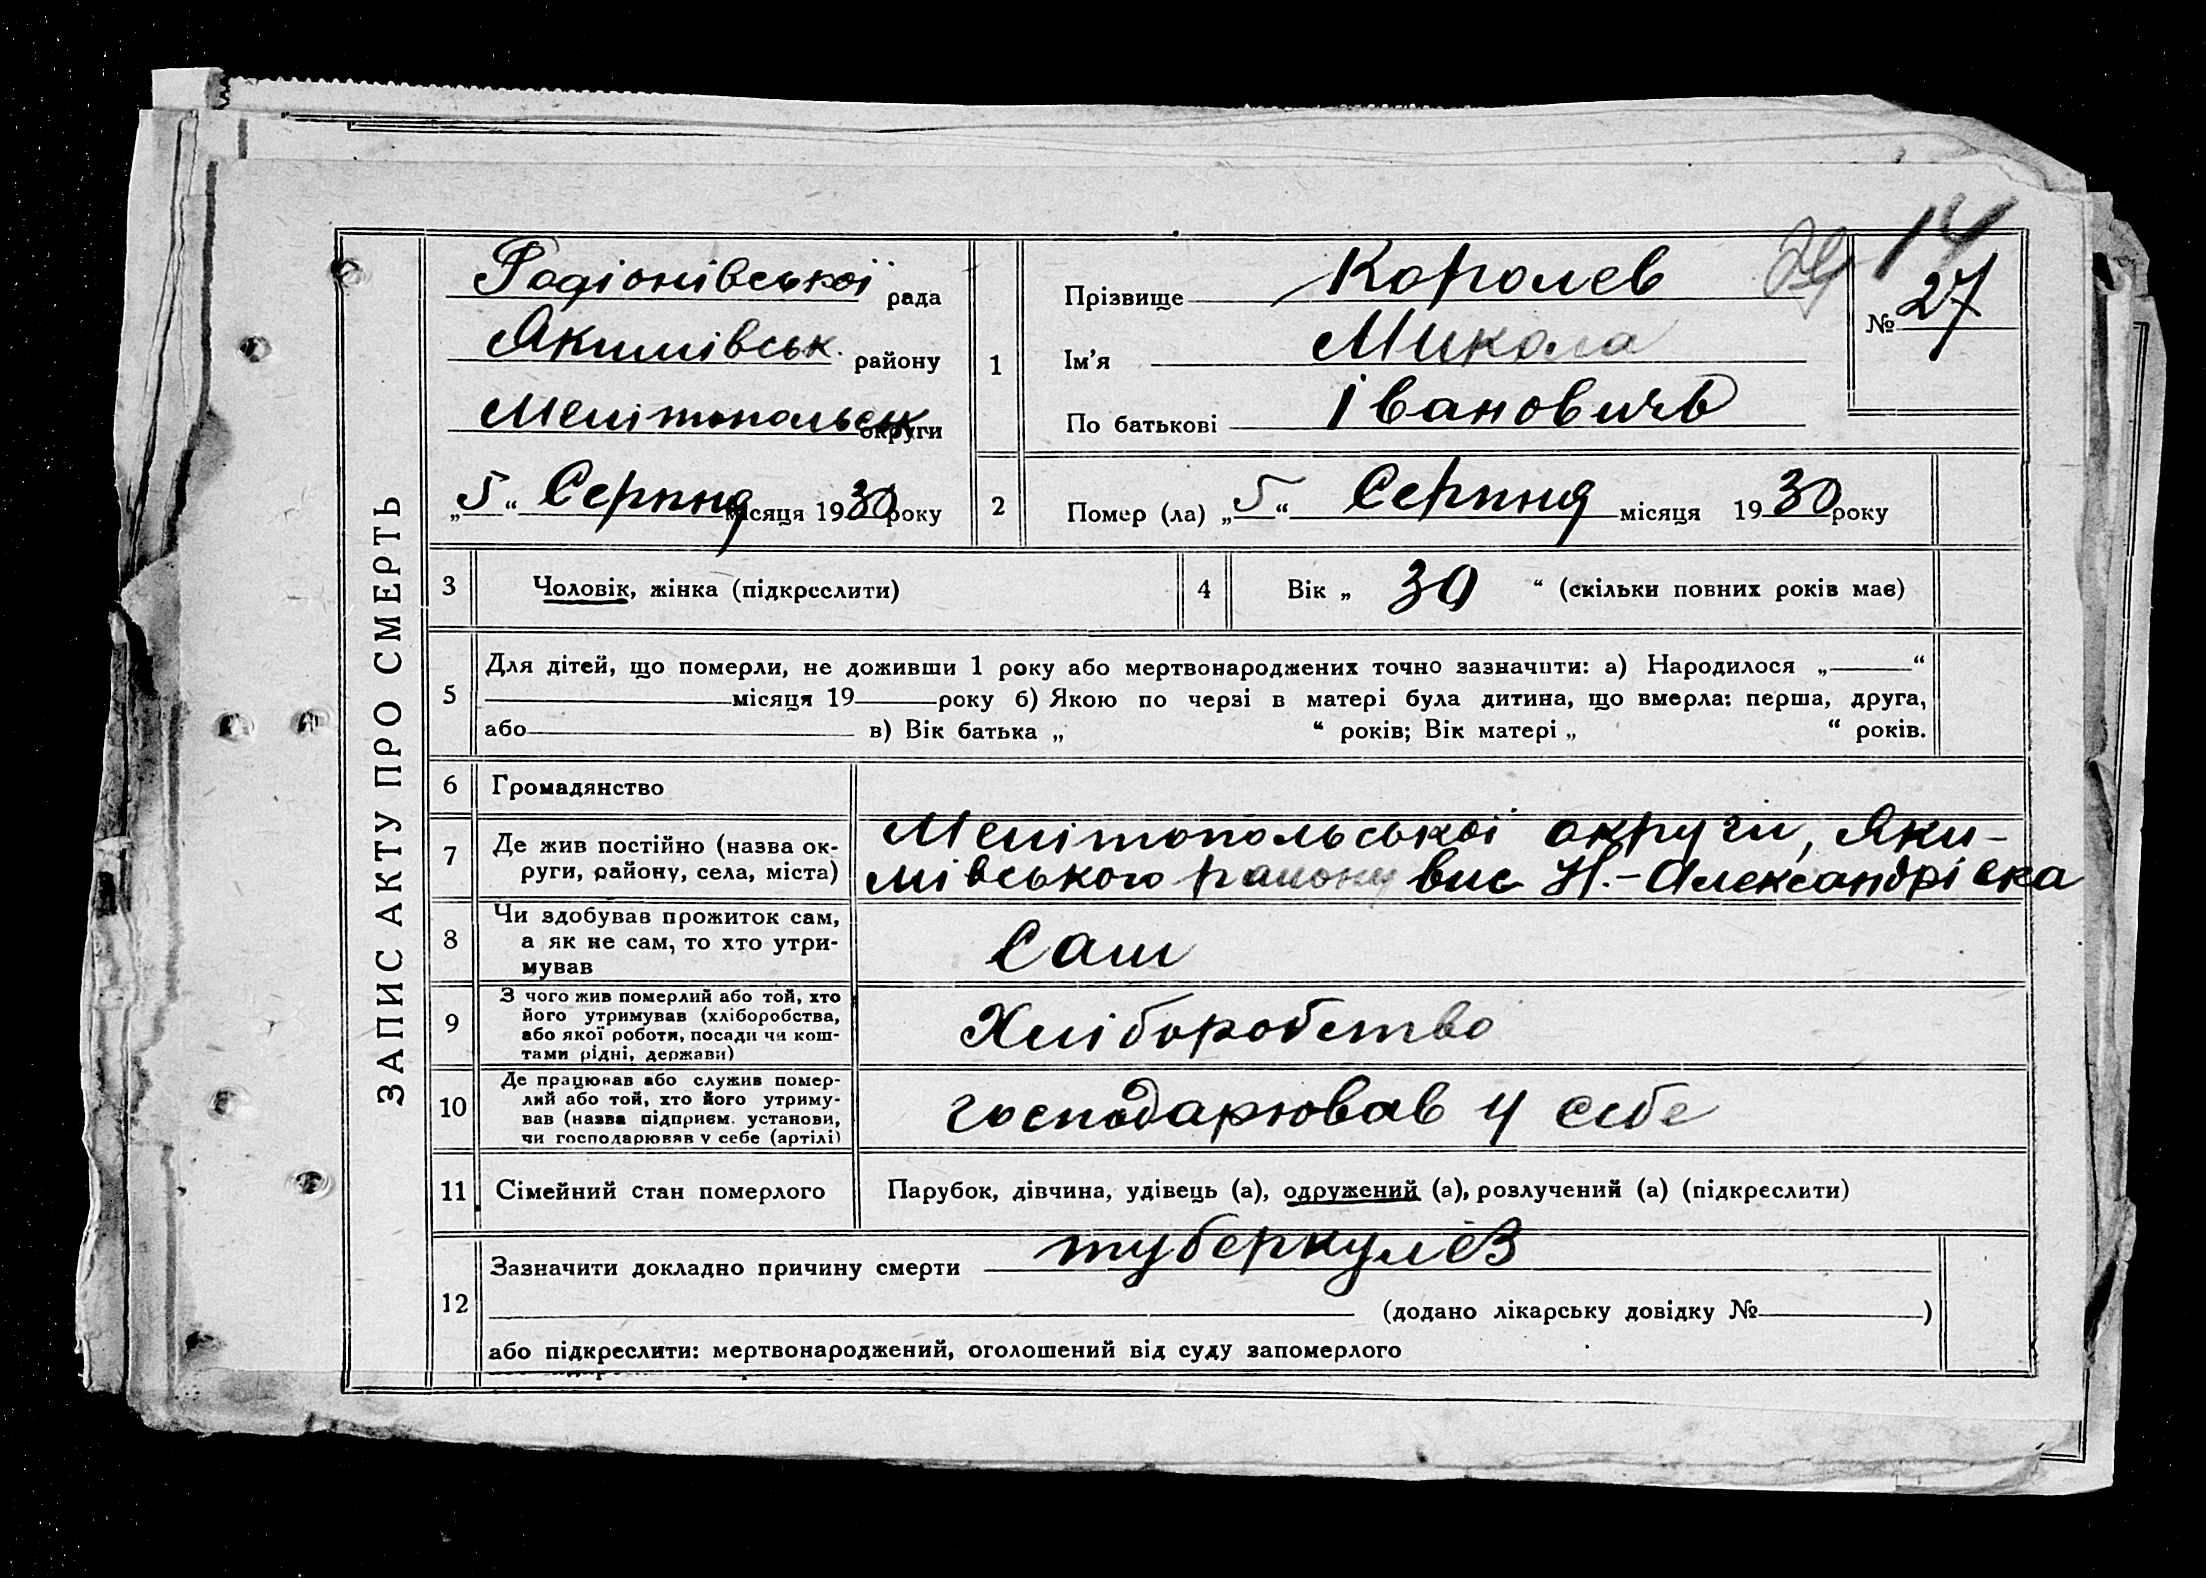 ЗАПИС АКТУ ПРО СМЕРТЬ
14
№ 27
Радіонівської рада
Якимівськ. району
Мелітопольськ округи
„5“ Серпня місяця 1930 року
1
Прізвище Королев
Ім'я Микола
По батькові Івановичь
2 Помер (ла) „5“ Серпня місяця 1930 року
3 Чоловік, жінка (підкреслити)
4 Вік „ 30 “ (скільки повних років має)
5
Для дітей, що померли, не доживши 1 року або мертвонароджених точно зазначити: а) Народилося „ “
місяця 19 року б) Якою по черзі в матері була дитина, що вмерла: перша, друга,
або в) Вік батька „ “ років; Вік матері „ “ років.
6 Громадянство
7
Де жив постійно (назва ок-
руги, району, села, міста)
Мелітопольської округи, Яки-
мівського району вис Н.-Александрівка
8
Чи здобував прожиток сам,
а як не сам, то хто утри-
мував
Сам
9
З чого жив померлий або той, хто
його утримував (хліборобства,
або якої роботи, посади чи кош-
тами рідні, держави)
Хліборобство
10
Де працював або служив помер-
лий або той, хто його утриму-
вав (назва підприєм. установи,
чи господарював у себе (артілі)
господарював у себе
11 Сімейний стан померлого
Парубок, дівчина, удівець (а), одружений (а), розлучений (а) (підкреслити)
12
Зазначити докладно причину смерти туберкулёз
(додано лікарську довідку № )
або підкреслити: мертвонароджений, оголошений від суду запомерлого